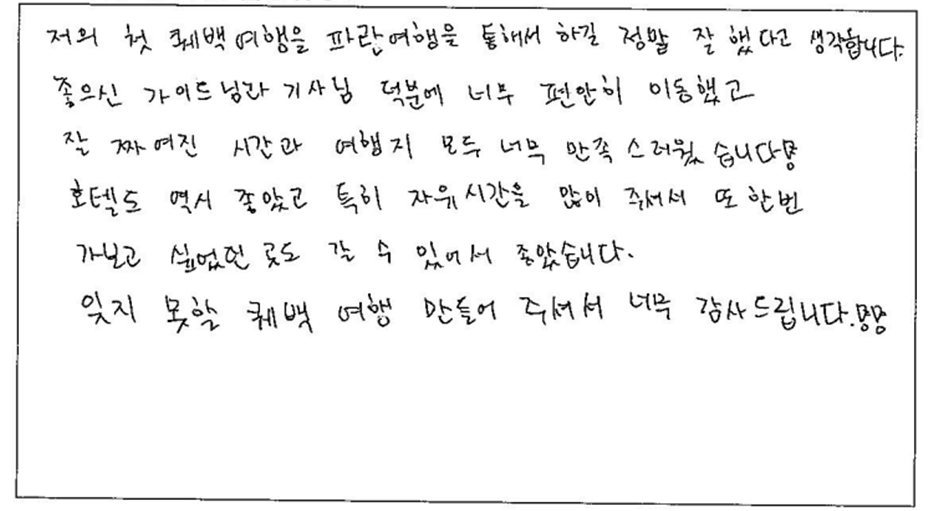 저의 첫 퀘백여행을 파란여행을 통해서 하길 정말 잘 했다고 생각합니다.
좋으신 가이드님과 기사님 덕분에 너무 편안히 이동했고
잘 짜여진 시간과 여행지 모두 너무 만족스러웠습니다
호텔도 역시 좋았고 특히 자유시간을 많이 주셔서 또 한번
가보고 싶었던 곳도 갈 수 있어서 좋았습니다.
잊지 못할 퀘백 여행 만들어 주셔서 너무 감사드립니다.